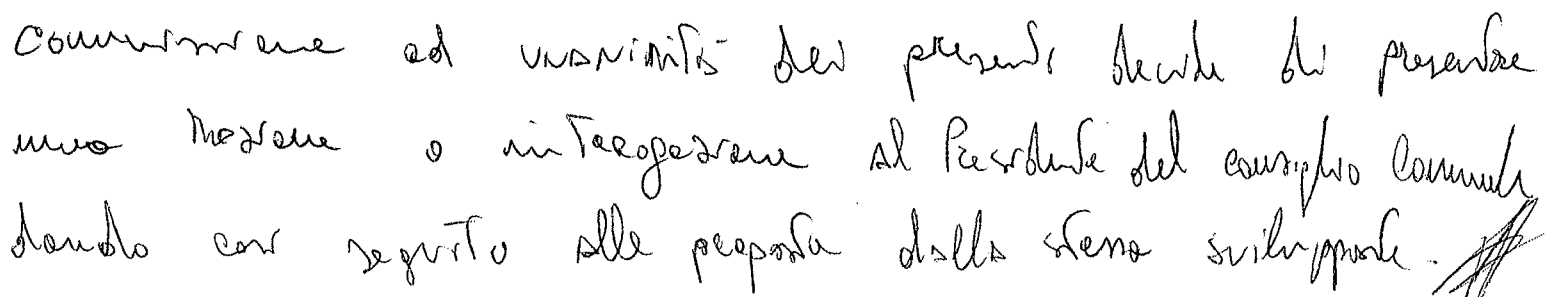 Commissione ad unanimità dei presenti decide di presentare
una mozione o interrogazione al Presidente del consiglio Comunale
dando così seguito alle proposte dalla stessa sviluppate.